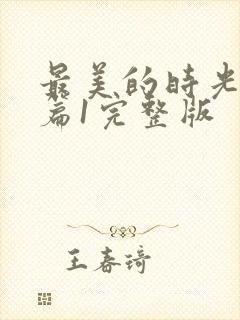 最美的时光
篇1完整版
王春琦